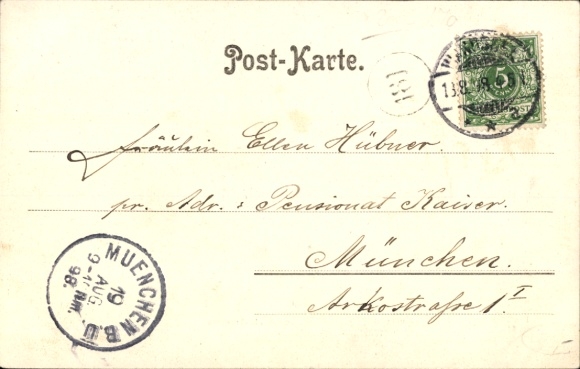 Post-Karte.
181
13.8.98
5
Fräulein Ellen Hübner.
pr. Adr.: Pensionat Kaiser.
München.
Arkostraße 1.I
MUENCHEN B.
19
AUG.
98.